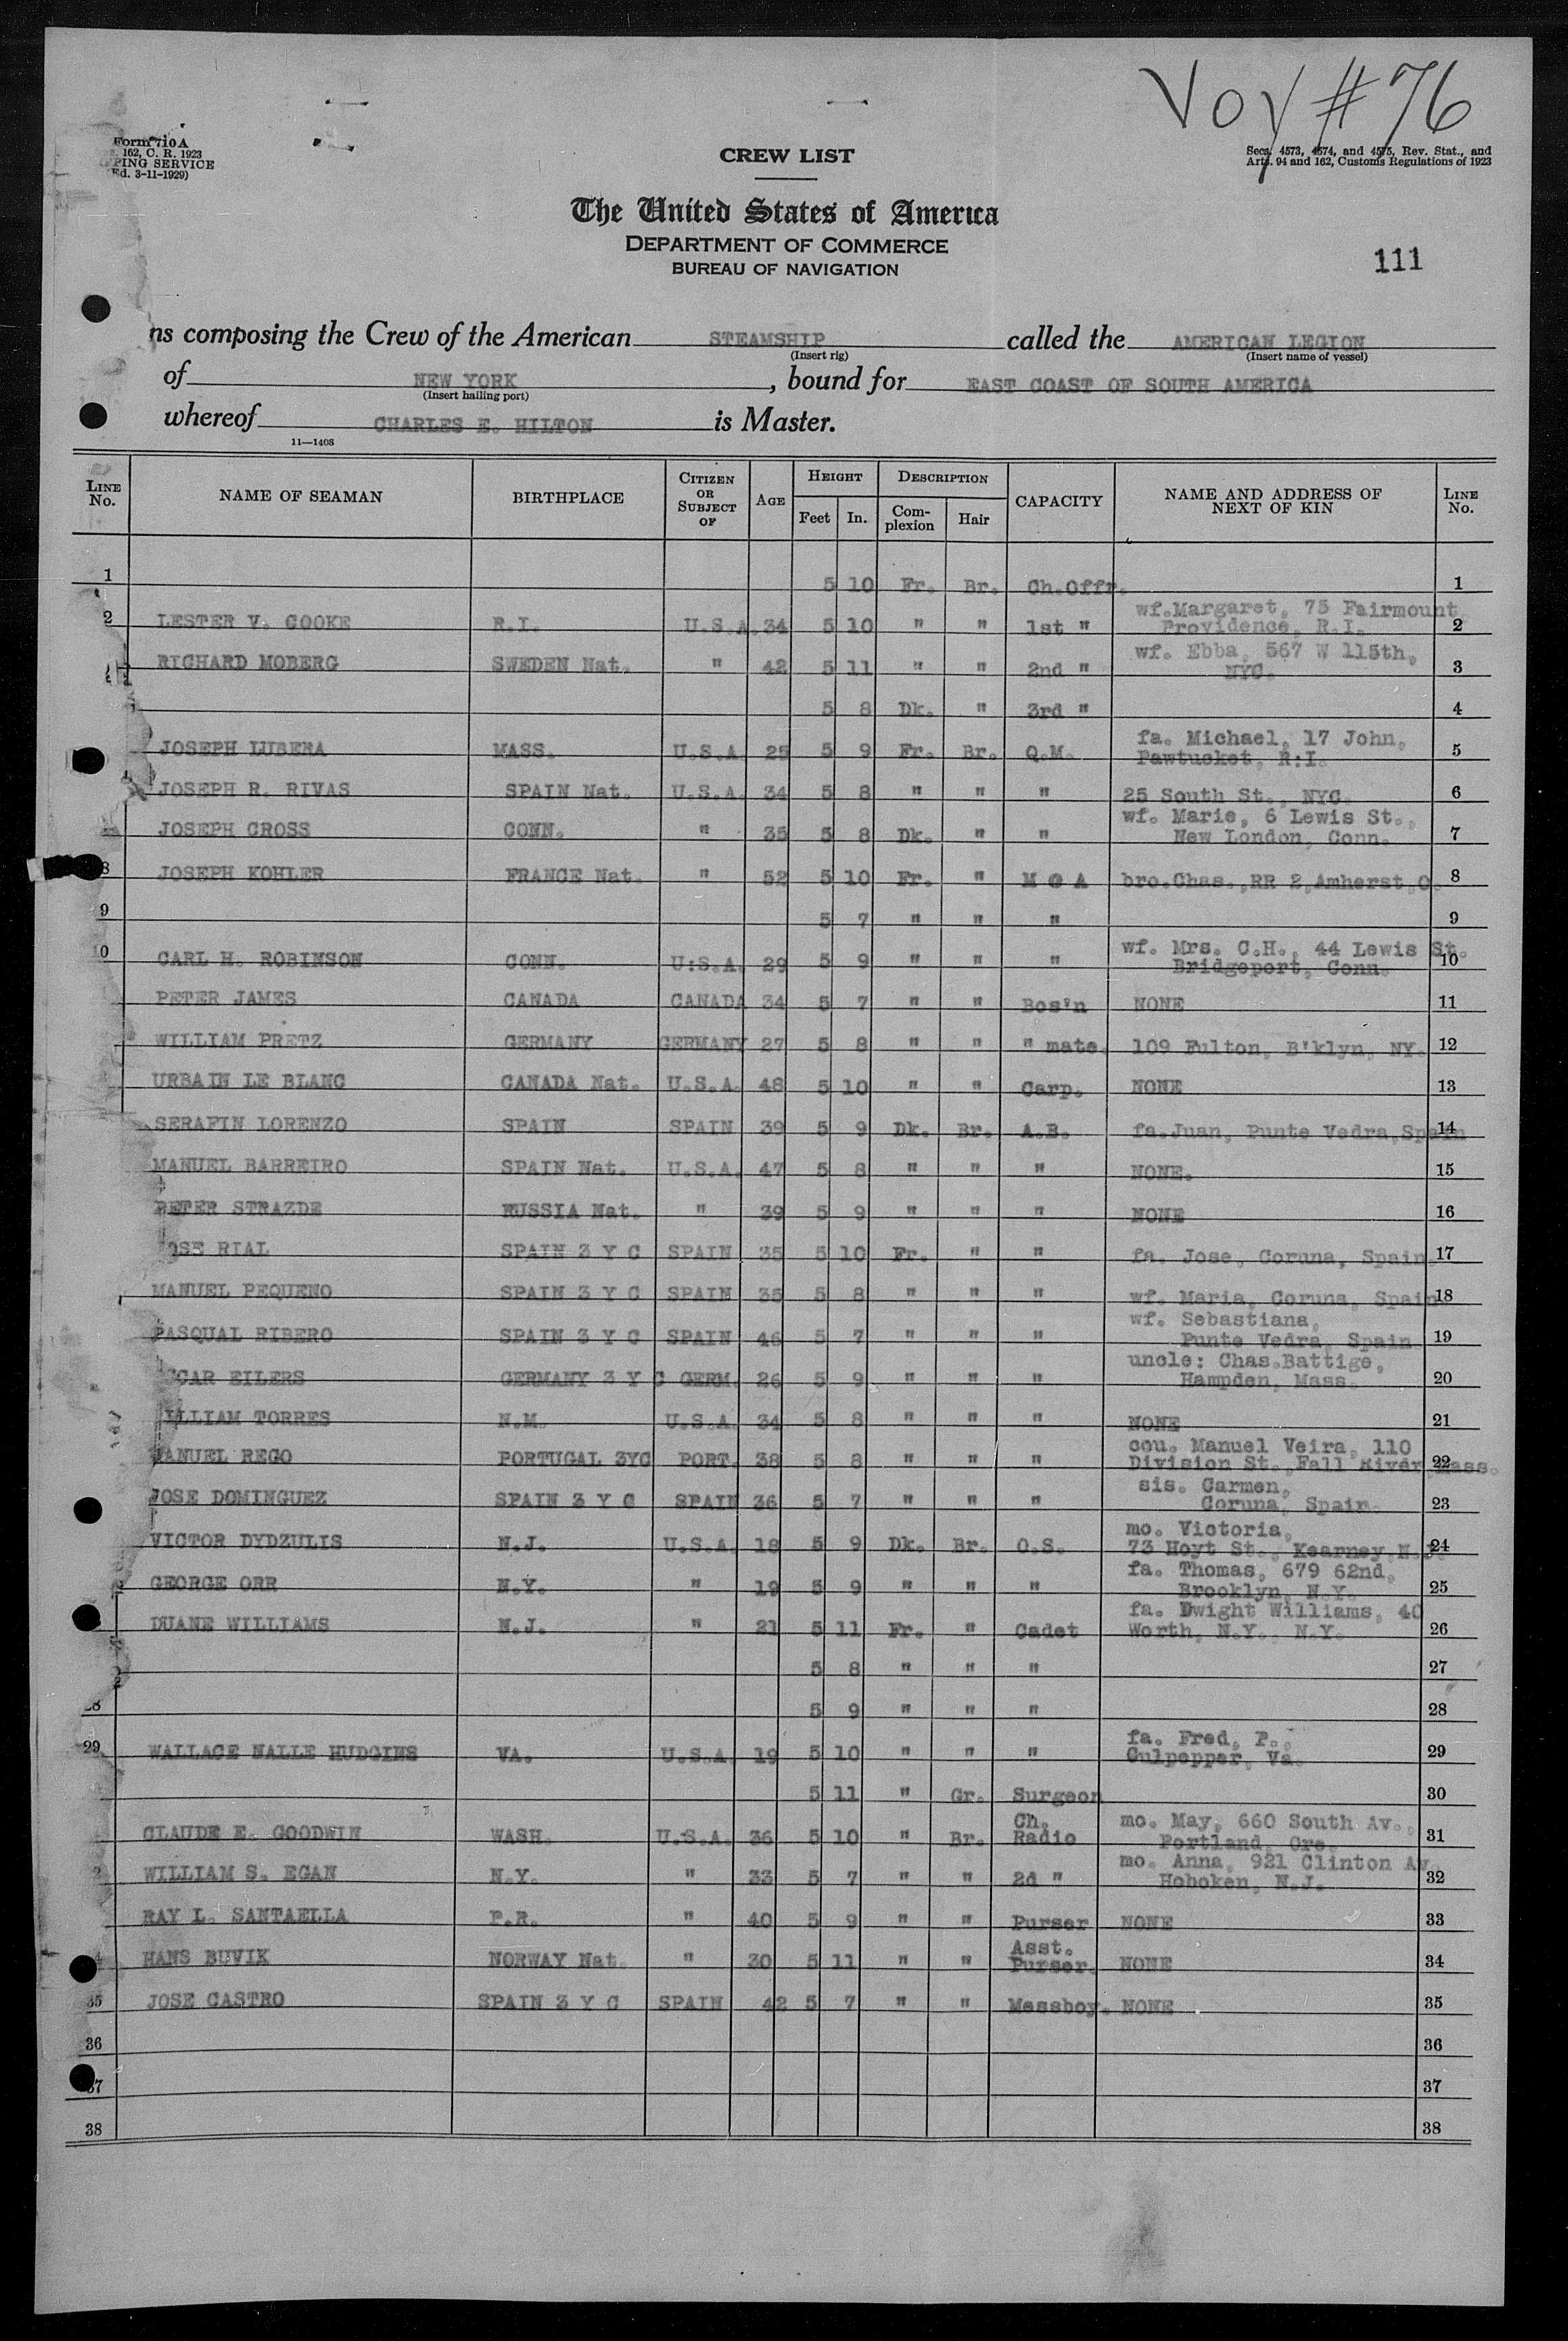 Voy #76
Form 710 A
162, C. R. 1923
PING SERVICE
Ed. 3-11-1929)
Secs. 4573, 4574, and 4575, Rev. Stat., and
Arts. 94 and 162, Customs Regulations of 1923
CREW LIST
The United States of America
DEPARTMENT OF COMMERCE
BUREAU OF NAVIGATION
111
ns composing the Crew of the American STEAMSHIP called the AMERICAN LEGION
(Insert rig) (Insert name of vessel)
of NEW YORK, bound for EAST COAST OF SOUTH AMERICA
(Insert hailing port)
whereof CHARLES E. HILTON is Master.
11—1408
LINE No. NAME OF SEAMAN BIRTHPLACE CITIZEN OR SUBJECT OF AGE HEIGHT Feet In. DESCRIPTION Complexion Hair CAPACITY NAME AND ADDRESS OF NEXT OF KIN LINE No.
1 5 10 Fr. Br. Ch.Offr. 1
2 LESTER V. COOKE R.I. U.S.A. 34 5 10 " " 1st " wf.Margaret, 75 Fairmount Providence, R.I. 2
RICHARD MOBERG SWEDEN Nat. " 42 5 11 " " 2nd " wf. Ebba, 567 W 115th, NYC. 3
5 8 Dk. " 3rd " 4
JOSEPH LUBERA MASS. U.S.A. 25 5 9 Fr. Br. Q.M. fa. Michael, 17 John, Pawtucket, R:I. 5
JOSEPH R. RIVAS SPAIN Nat. U.S.A. 34 5 8 " " " 25 South St., NYC. 6
JOSEPH CROSS CONN. " 35 5 8 Dk. " " wf. Marie, 6 Lewis St., New London, Conn. 7
8 JOSEPH KOHLER FRANCE Nat. " 52 5 10 Fr. " M @ A bro.Chas.,RR 2,Amherst,O. 8
9 5 7 " " " 9
10 CARL H. ROBINSON CONN. U:S.A. 29 5 9 " " " wf. Mrs. C.H., 44 Lewis St. Bridgeport, Conn. 10
PETER JAMES CANADA CANADA 34 5 7 " " Bos'n NONE 11
WILLIAM PRETZ GERMANY GERMANY 27 5 8 " " " mate. 109 Fulton, B'klyn, NY. 12
URBAIN LE BLANC CANADA Nat. U.S.A. 48 5 10 " " Carp. NONE 13
SERAFIN LORENZO SPAIN SPAIN 39 5 9 Dk. Br. A.B. fa.Juan, Punte Vedra,Spain 14
MANUEL BARREIRO SPAIN Nat. U.S.A. 47 5 8 " " " NONE. 15
PETER STRAZDE RUSSIA Nat. " 39 5 9 " " " NONE 16
JOSE RIAL SPAIN 3 Y C SPAIN 35 5 10 Fr. " " fa. Jose, Coruna, Spain 17
MANUEL PEQUENO SPAIN 3 Y C SPAIN 35 5 8 " " " wf. Maria, Coruna, Spain 18
PASQUAL RIBERO SPAIN 3 Y C SPAIN 46 5 7 " " " wf. Sebastiana, Punte Vedra, Spain 19
CAR EILERS GERMANY 3 Y C GERM. 26 5 9 " " " uncle: Chas.Battige, Hampden, Mass. 20
ILLIAM TORRES N.M. U.S.A. 34 5 8 " " " NONE 21
MANUEL REGO PORTUGAL 3YC PORT. 38 5 8 " " " cou. Manuel Veira, 110 Division St.,Fall River,Mass. 22
JOSE DOMINGUEZ SPAIN 3 Y C SPAIN 36 5 7 " " " sis. Carmen, Coruna, Spain. 23
VICTOR DYDZULIS N.J. U.S.A. 18 5 9 Dk. Br. O.S. mo. Victoria, 73 Hoyt St., Kearney,N.J. 24
GEORGE ORR N.Y. " 19 5 9 " " " fa. Thomas, 679 62nd, Brooklyn, N.Y. 25
DUANE WILLIAMS N.J. " 21 5 11 Fr. " Cadet fa. Dwight Williams, 40 Worth, N.Y., N.Y. 26
5 8 " " " 27
28 5 9 " " " 28
29 WALLACE NALLE HUDGINS VA. U.S.A. 19 5 10 " " " fa. Fred, P., Culpepper, Va. 29
5 11 " Gr. Surgeon 30
CLAUDE E. GOODWIN WASH. U.S.A. 36 5 10 " Br. Ch. Radio mo. May, 660 South Av., Portland, Ore. 31
WILLIAM S. EGAN N.Y. " 33 5 7 " " 2d " mo. Anna, 921 Clinton Av. Hoboken, N.J. 32
RAY L. SANTAELLA P.R. " 40 5 9 " " Purser NONE 33
HANS BUVIK NORWAY Nat. " 30 5 11 " " Asst. Purser. NONE 34
35 JOSE CASTRO SPAIN 3 Y C SPAIN 42 5 7 " " Messboy. NONE 35
36 36
37 37
38 38